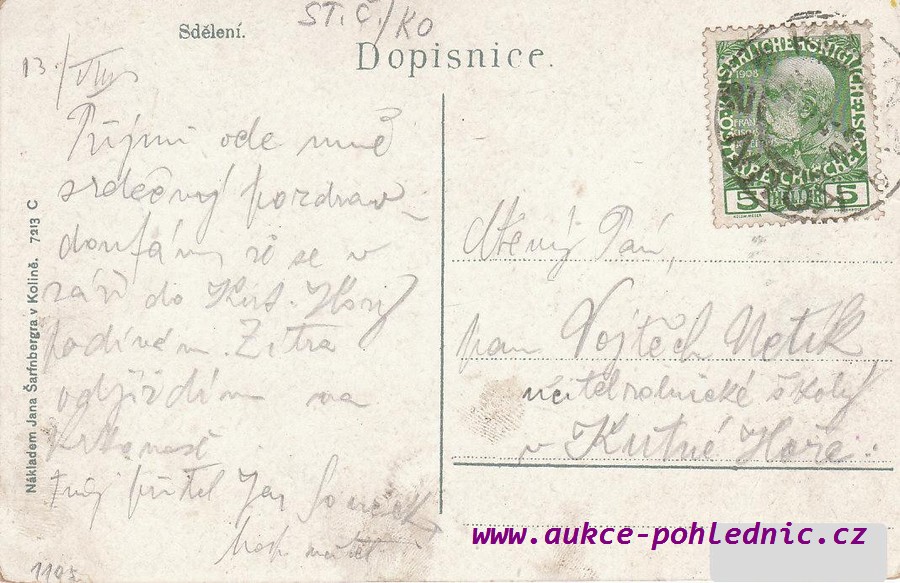 ST.Č./KO
Sdělení.
Dopisnice.
13./VIII
Přijmi ode mně
srdečný pozdrav
doufám, že se v
září do Kut. Hory
podívám. Zítra
odjíždím na
Krkonoše
Tvůj přítel Jar. Souček
Nákladem Jana Šarfnbergra v Kolíně. 7213 C
1105
KAISERLICHE KÖNIGLICHE
1908
5 HELLER 5
Ctěný Pán,
pan Vojtěch Netík
učitel rolnické školy
v Kutné Hoře.
www.aukce-pohlednic.cz